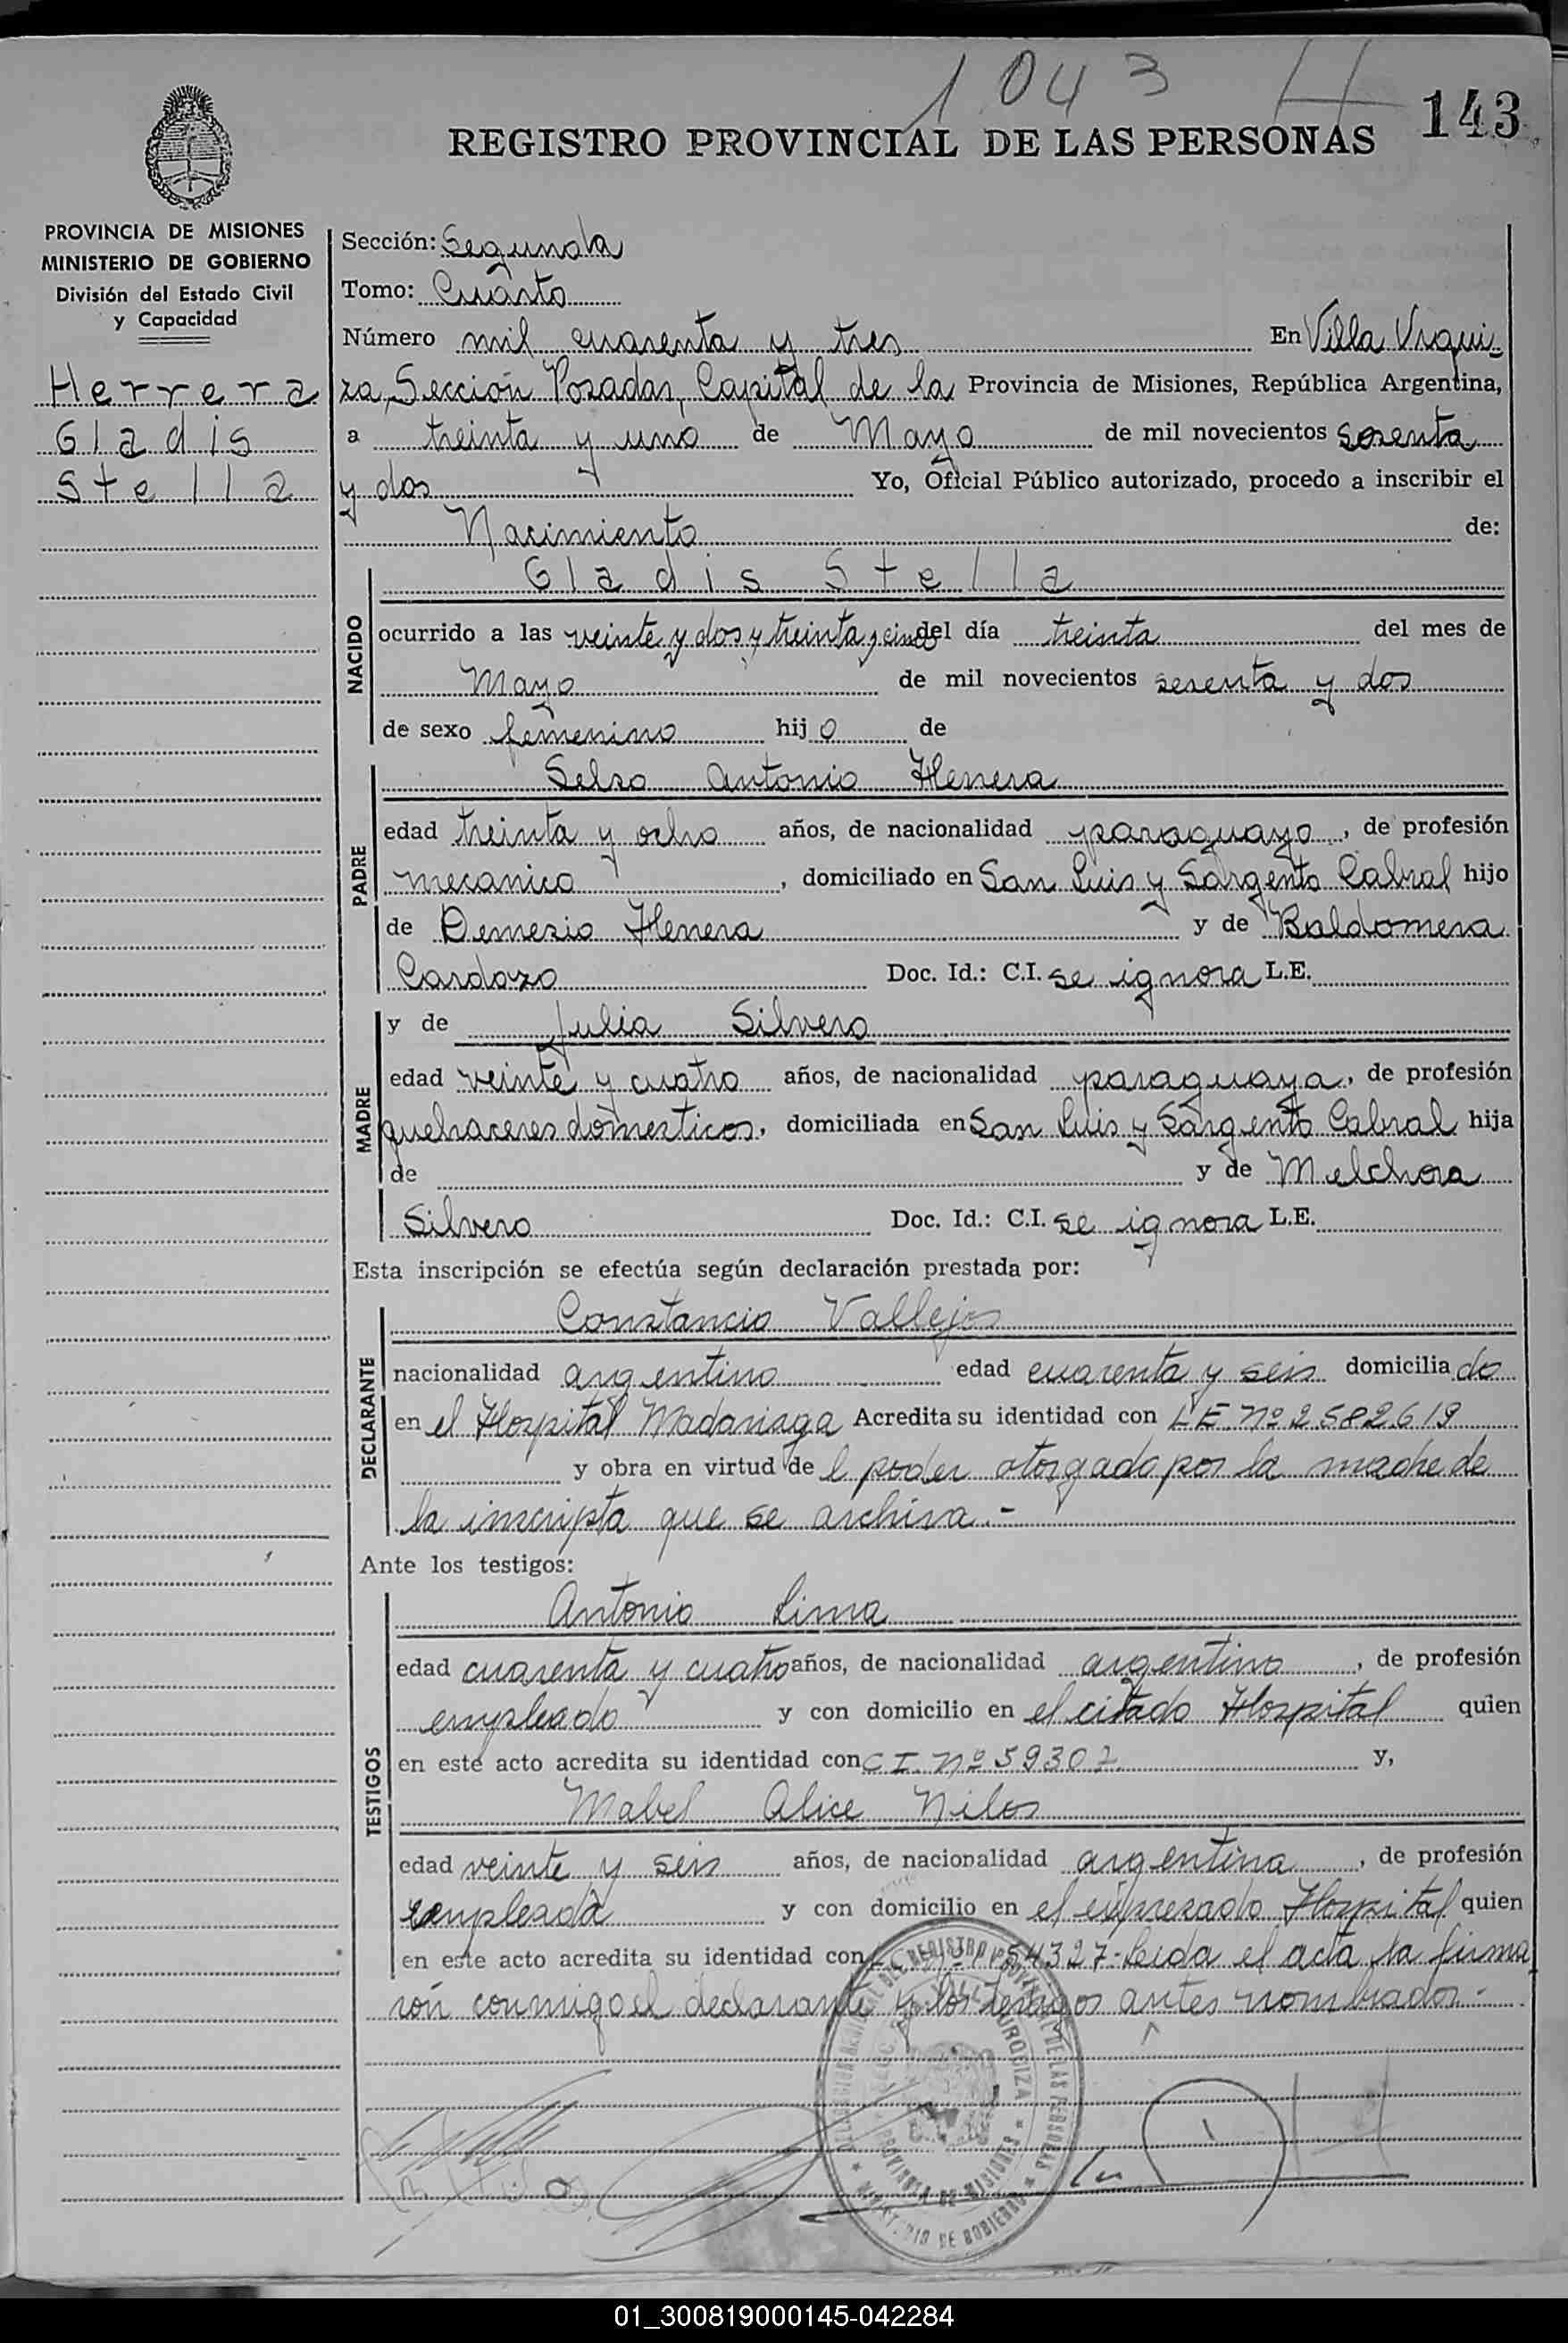 1043 H
143
REGISTRO PROVINCIAL DE LAS PERSONAS
PROVINCIA DE MISIONES
MINISTERIO DE GOBIERNO
División del Estado Civil
y Capacidad
Herrera
Gladis
Stella
Sección: Segunda
Tomo: Cuarto
Número mil cuarenta y tres En Villa Urqui-
za, Sección Posadas, Capital de la Provincia de Misiones, República Argentina,
a treinta y uno de Mayo de mil novecientos sesenta
y dos Yo, Oficial Público autorizado, procedo a inscribir el
Nacimiento de:
NACIDO
Gladis Stella
ocurrido a las veinte y dos y treinta y cinco del día treinta del mes de
Mayo de mil novecientos sesenta y dos
de sexo femenino hijo de
PADRE
Selso Antonio Herrera
edad treinta y ocho años, de nacionalidad paraguayo, de profesión
mecanico, domiciliado en San Luis y Sargento Cabral hijo
de Demesio Herrera y de Baldomera
Cardozo Doc. Id.: C.I. se ignora L.E.
MADRE
y de Julia Silvero
edad veinte y cuatro años, de nacionalidad paraguaya, de profesión
quehaceres domesticos, domiciliada en San Luis y Sargento Cabral hija
de y de Melchora
Silvero Doc. Id.: C.I. se ignora L.E.
Esta inscripción se efectúa según declaración prestada por:
DECLARANTE
Constancio Vallejos
nacionalidad argentino edad cuarenta y seis domiciliado
en el Hospital Madariaga Acredita su identidad con L.E. Nº 2582619
y obra en virtud del poder otorgado por la madre de
la inscripta que se archiva.-
Ante los testigos:
TESTIGOS
Antonio Lima
edad cuarenta y cuatro años, de nacionalidad argentino, de profesión
empleado y con domicilio en el citado Hospital quien
en este acto acredita su identidad con C I. Nº 59302 y,
Mabel Alice Nilos
edad veinte y seis años, de nacionalidad argentina, de profesión
empleada y con domicilio en el expresado Hospital quien
en este acto acredita su identidad con 54327- Leida el acta la firma
rón conmigo el declarante y los testigos antes nombrados.-
01_300819000145-042284